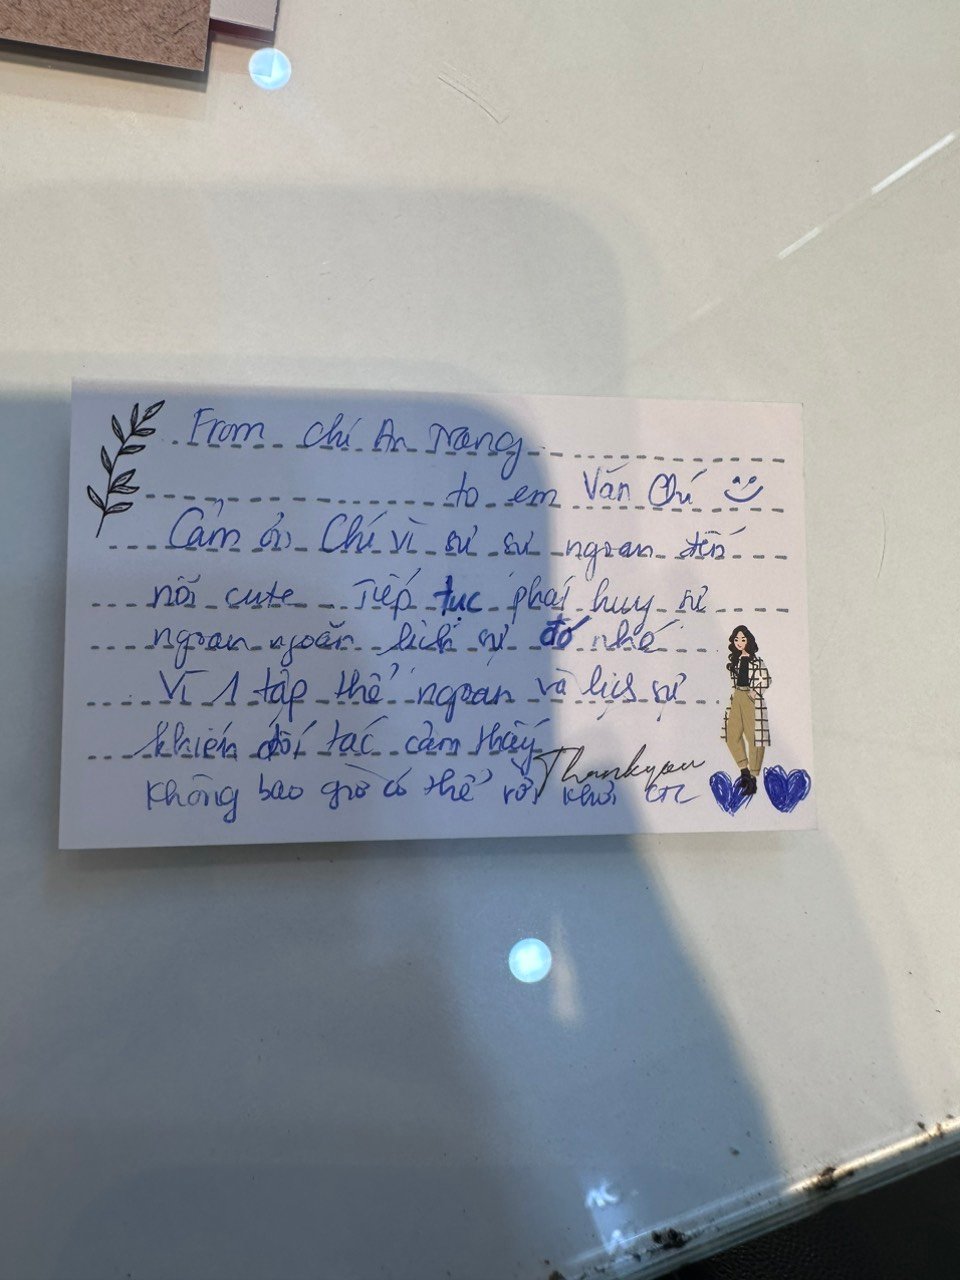 From chí An Trang
to em Văn Chí
Cảm ơn Chí vì sự sự ngoan đến
nỗi cute Tiếp tục phát huy sự
ngoan ngoãn lịch sự đó nhé
Vì 1 tập thể ngoan và lịch sự
khiến đối tác cảm thấy
không bao giờ có thể rời khỏi
Thankyou